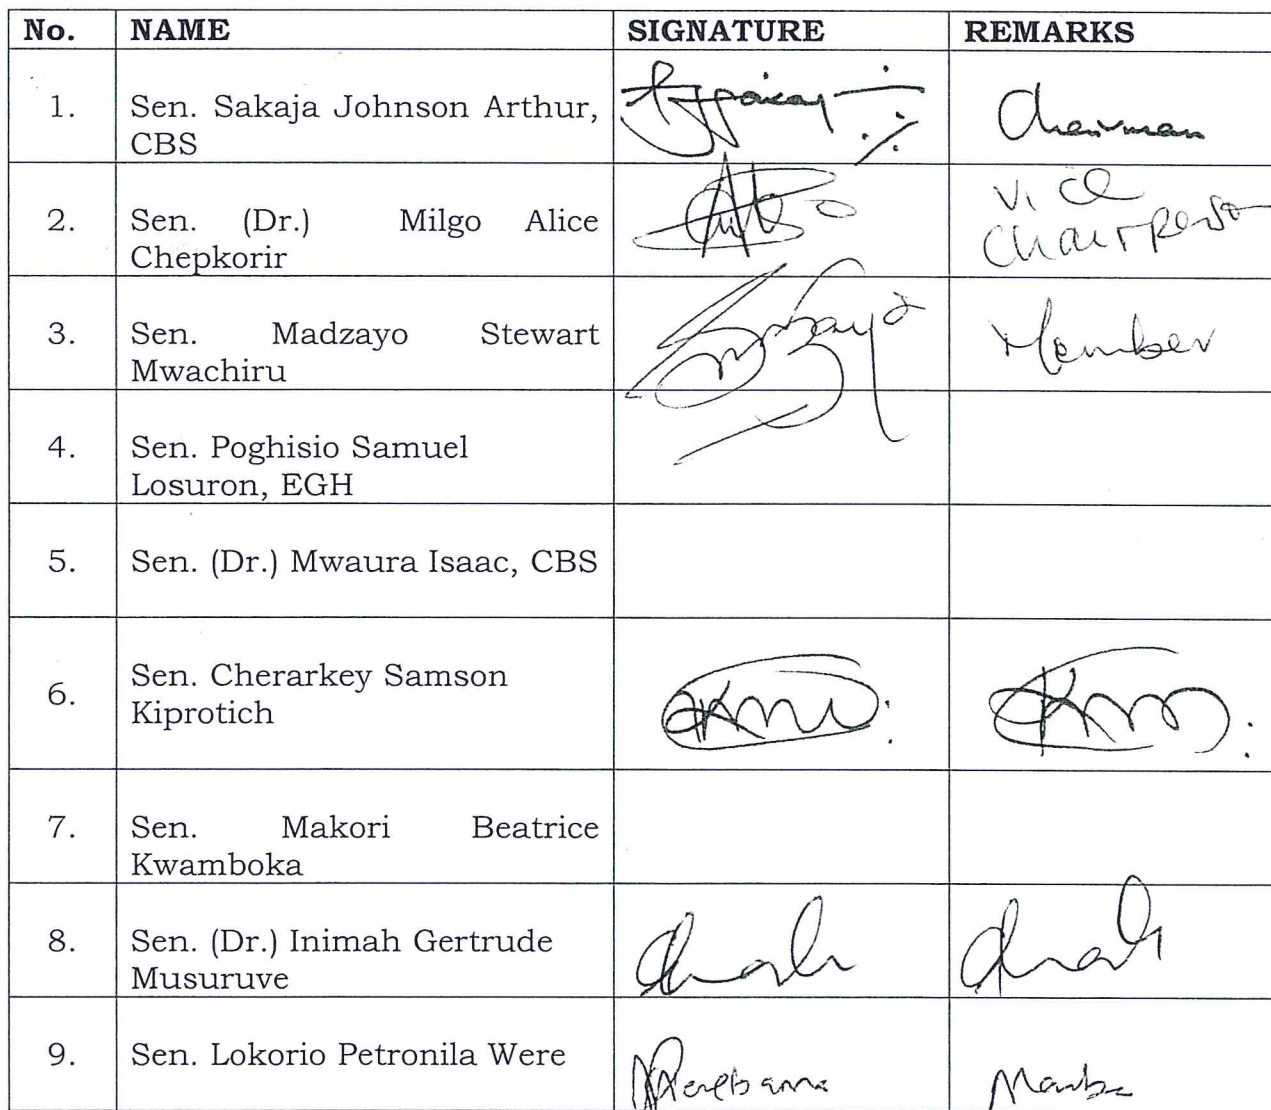 No. NAME SIGNATURE REMARKS
1. Sen. Sakaja Johnson Arthur, Chairman
CBS
2. Sen. (Dr.) Milgo Alice Vice
Chepkorir Chairperso
3. Sen. Madzayo Stewart Member
Mwachiru
4. Sen. Poghisio Samuel
Losuron, EGH
5. Sen. (Dr.) Mwaura Isaac, CBS
6. Sen. Cherarkey Samson
Kiprotich
7. Sen. Makori Beatrice
Kwamboka
8. Sen. (Dr.) Inimah Gertrude
Musuruve
9. Sen. Lokorio Petronila Were